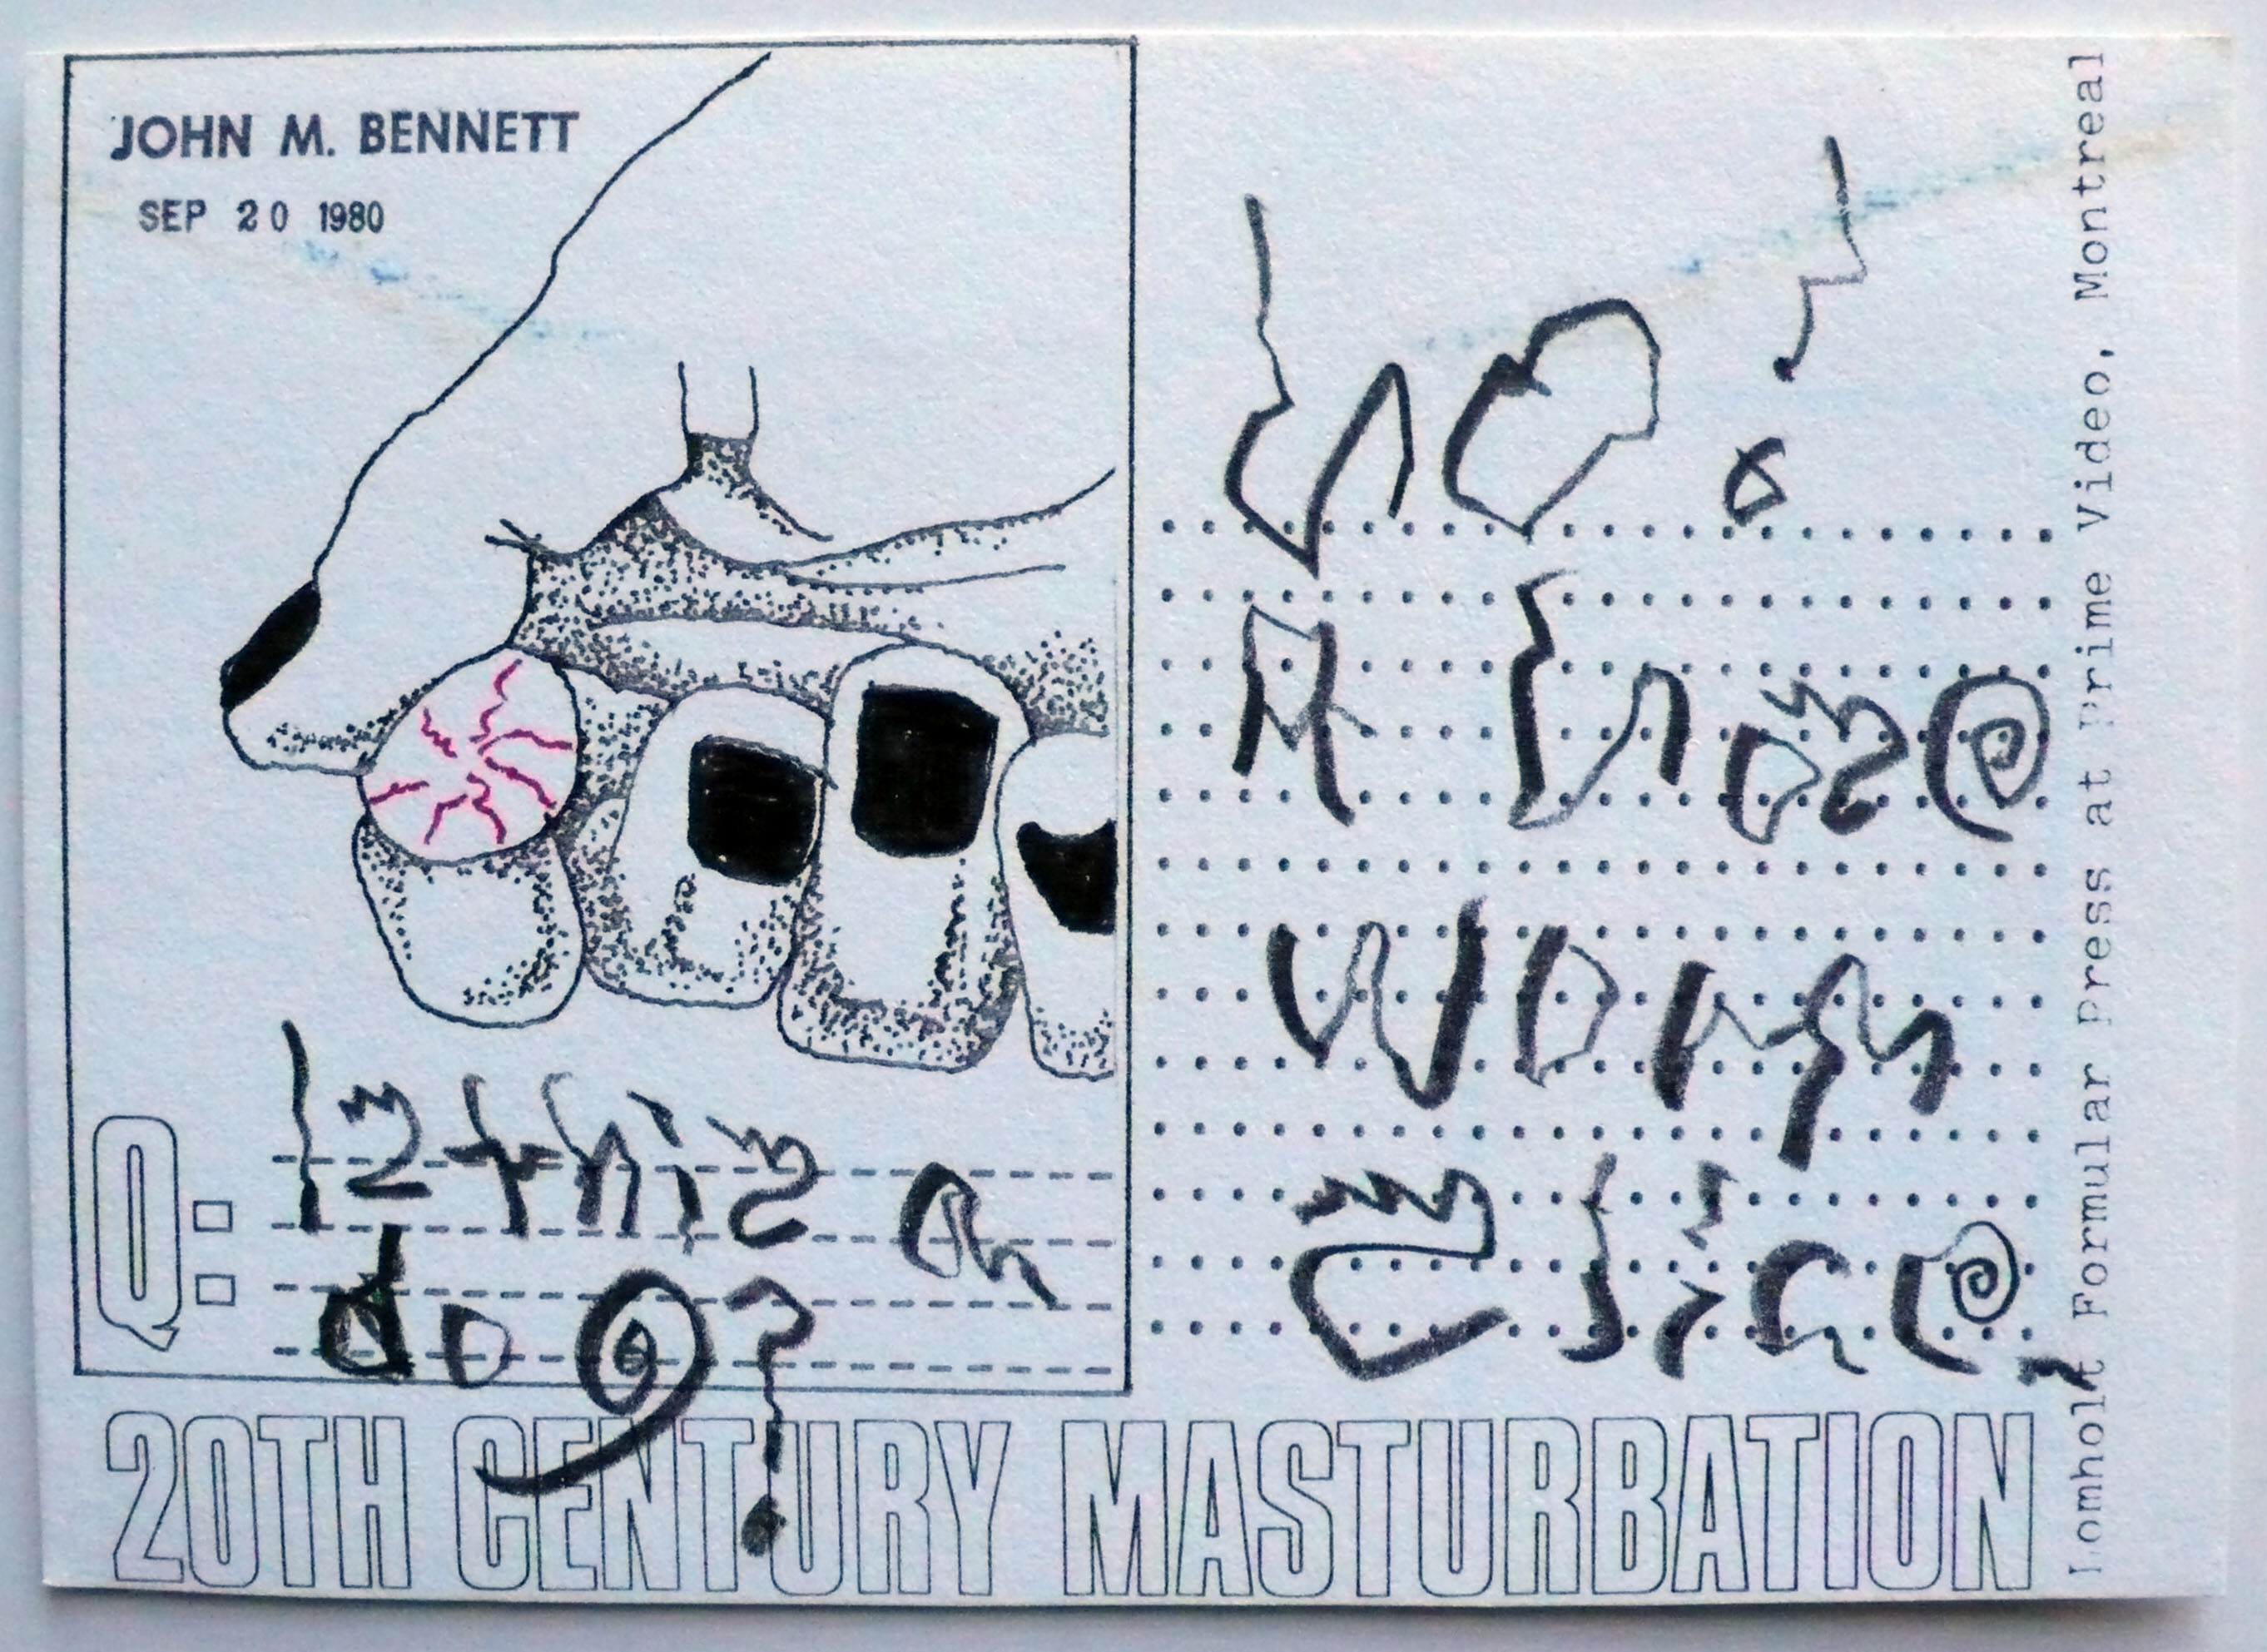 JOHN M. BENNETT
SEP 20 1980
Q:
Iz thiz a
dog?
hO!
A hoze
20TH CENTURY MASTURBATION
Lomholt Formular Press at Prime Video, Montreal